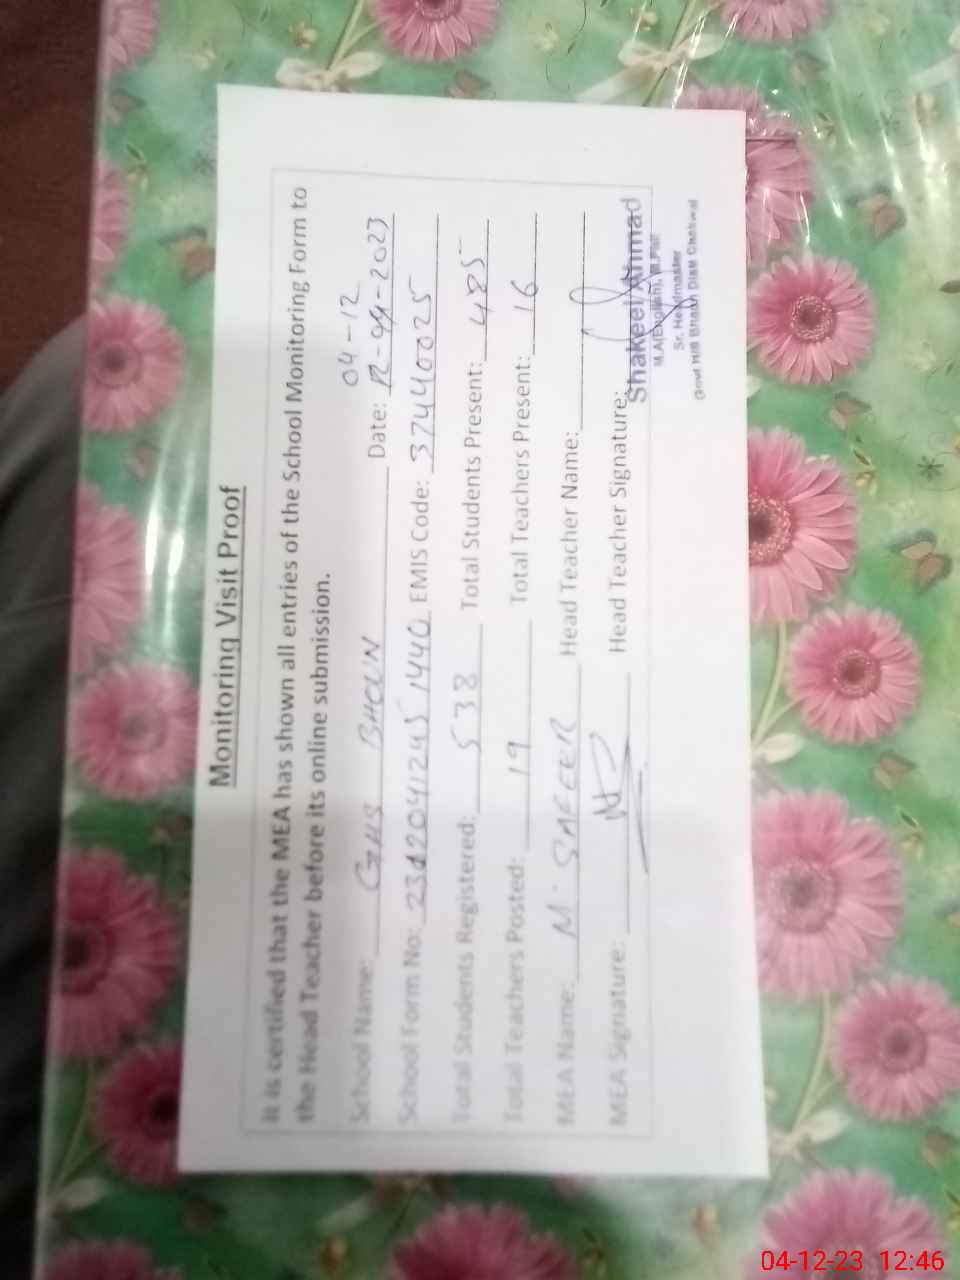 Monitoring Visit Proof
It is certified that the MEA has shown all entries of the School Monitoring Form to
the Head Teacher before its online submission.
04-12
School Name: GHS BHOUN Date: 12-09-2023
School Form No: 23120412451440 EMIS Code: 37440025
Total Students Registered: 538 Total Students Present: 485
Total Teachers Posted: 19 Total Teachers Present: 16
MEA Name: M. SAFEER Head Teacher Name:
MEA Signature: Head Teacher Signature:
Shakeel Ahmad
M.A(English), M.Phil
Sr. Headmaster
Govt H/S Bhaun Distt Chakwal
04-12-23 12:46